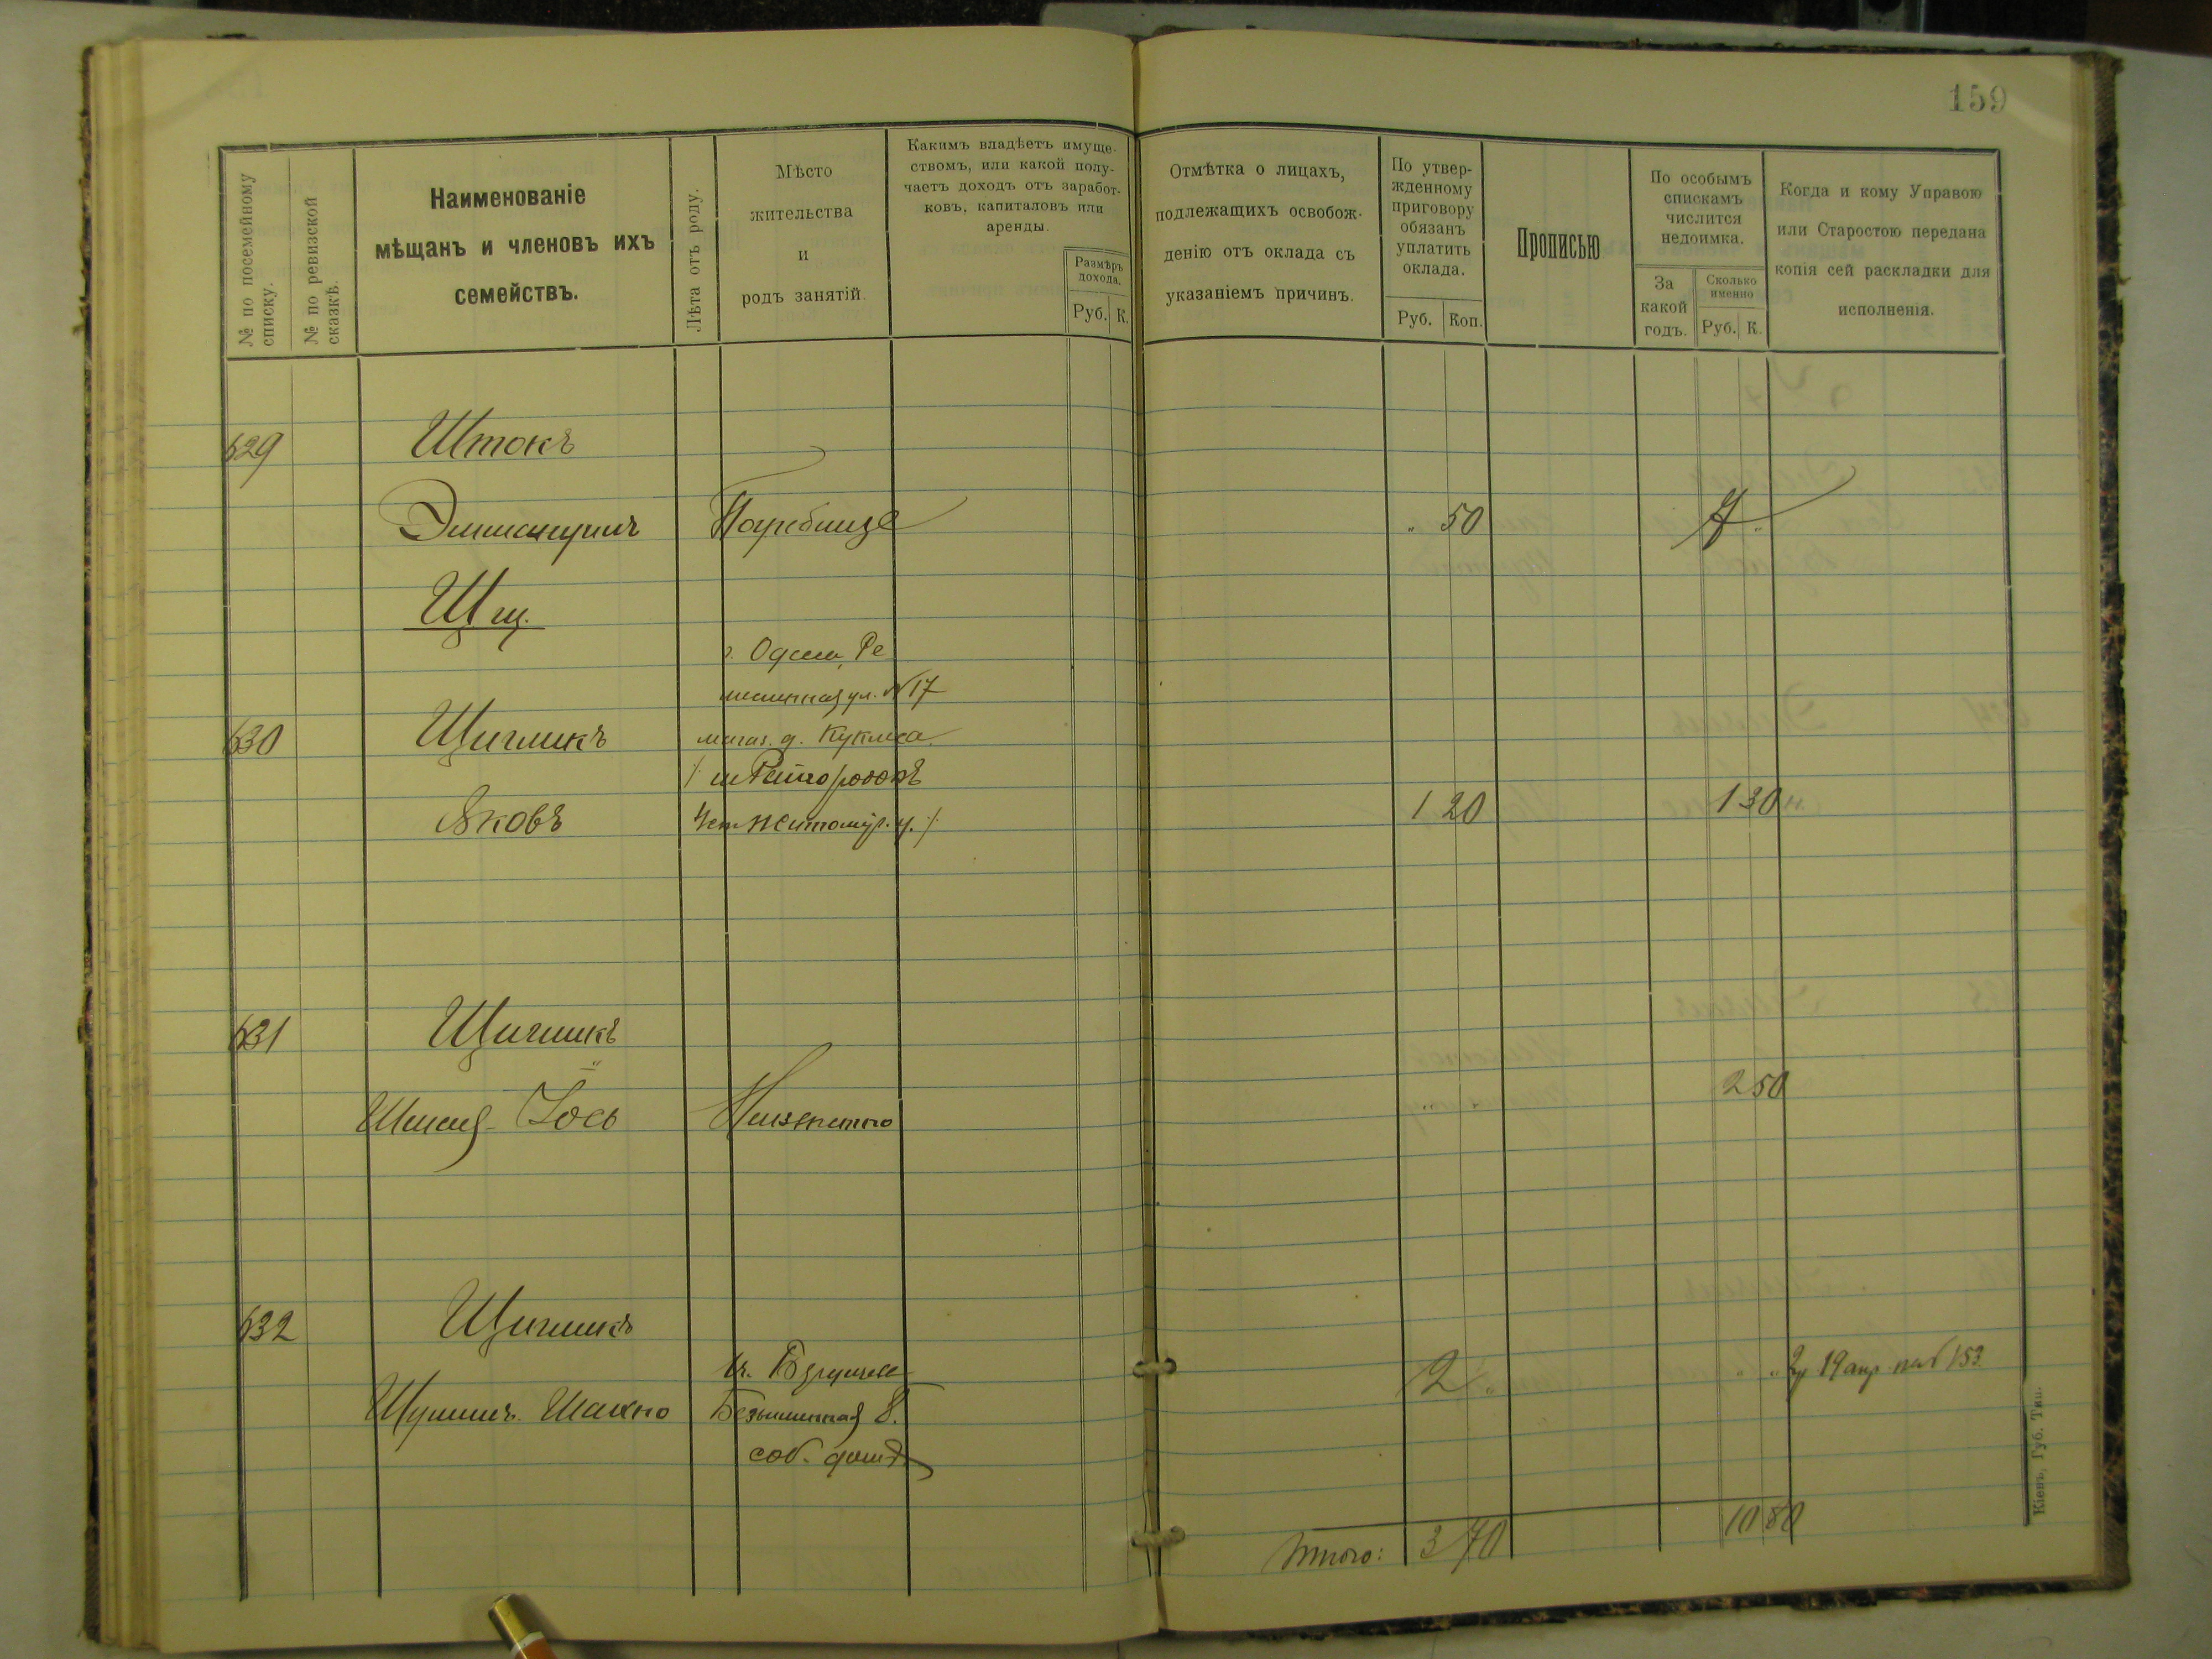 159
№ по посемейному списку.
№ по ревизской сказкѣ.
Наименованіе
мѣщанъ и членовъ ихъ
семействъ.
Лѣта отъ роду.
Мѣсто
жительства
и
родъ занятій.
Какимъ владѣетъ имуще-
ствомъ, или какой полу-
чаетъ доходъ отъ заработ-
ковъ, капиталовъ или
аренды.
Размѣръ
дохода.
Руб. К.
Отмѣтка о лицахъ,
подлежащихъ освобож-
денію отъ оклада съ
указаніемъ причинъ.
По утвер-
жденному
приговору
обязанъ
уплатить
оклада.
Руб. Коп.
Прописью
По особымъ
спискамъ
числится
недоимка.
За
какой
годъ.
Сколько
именно
Руб. К.
Когда и кому Управою
или Старостою передана
копія сей раскладки для
исполненія.
629 Штокъ
Эммануилъ Погребище " 50 7 "
Щ щ.
г. Одесса, Ре
месленная ул. № 17
630 Щигликъ магаз. д.
Яковъ Житомир. у. 1 20 1 30
631 Щигликъ
2 50
Іось Неизвестно
632 Щигликъ
2 " " " 19 апр 153
Шахно Безыменная 8.
соб. домъ
Итого: 3 70 10 80
Кіевъ, Губ. Тип.